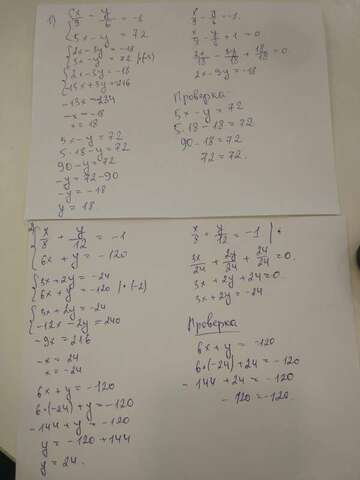 1) { x/9 - y/6 = -1
5x - y = 72
{ 2x - 3y = -18
5x - y = 72 |·(-3)
{ 2x - 3y = -18
-15x + 3y = -216
-13x = -234
-x = -18
x = 18
5x - y = 72
5·18 - y = 72
90 - y = 72
-y = 72 - 90
-y = -18
y = 18.
x/9 - y/6 = -1
x/9 - y/6 + 1 = 0
2x/18 - 3y/18 + 18/18 = 0
2x - 3y = -18
Проверка:
5x - y = 72
5·18 - 18 = 72
90 - 18 = 72
72 = 72.
2) { x/8 + y/12 = -1
6x + y = -120
{ 3x + 2y = -24
6x + y = -120 |·(-2)
{ 3x + 2y = -24
-12x - 2y = 240
-9x = 216
-x = 24
x = -24
6x + y = -120
6·(-24) + y = -120
-144 + y = -120
y = -120 + 144
y = 24.
x/8 + y/12 = -1
3x/24 + 2y/24 + 24/24 = 0.
3x + 2y + 24 = 0.
3x + 2y = -24
Проверка
6x + y = -120
6·(-24) + 24 = -120
-144 + 24 = -120
-120 = -120.